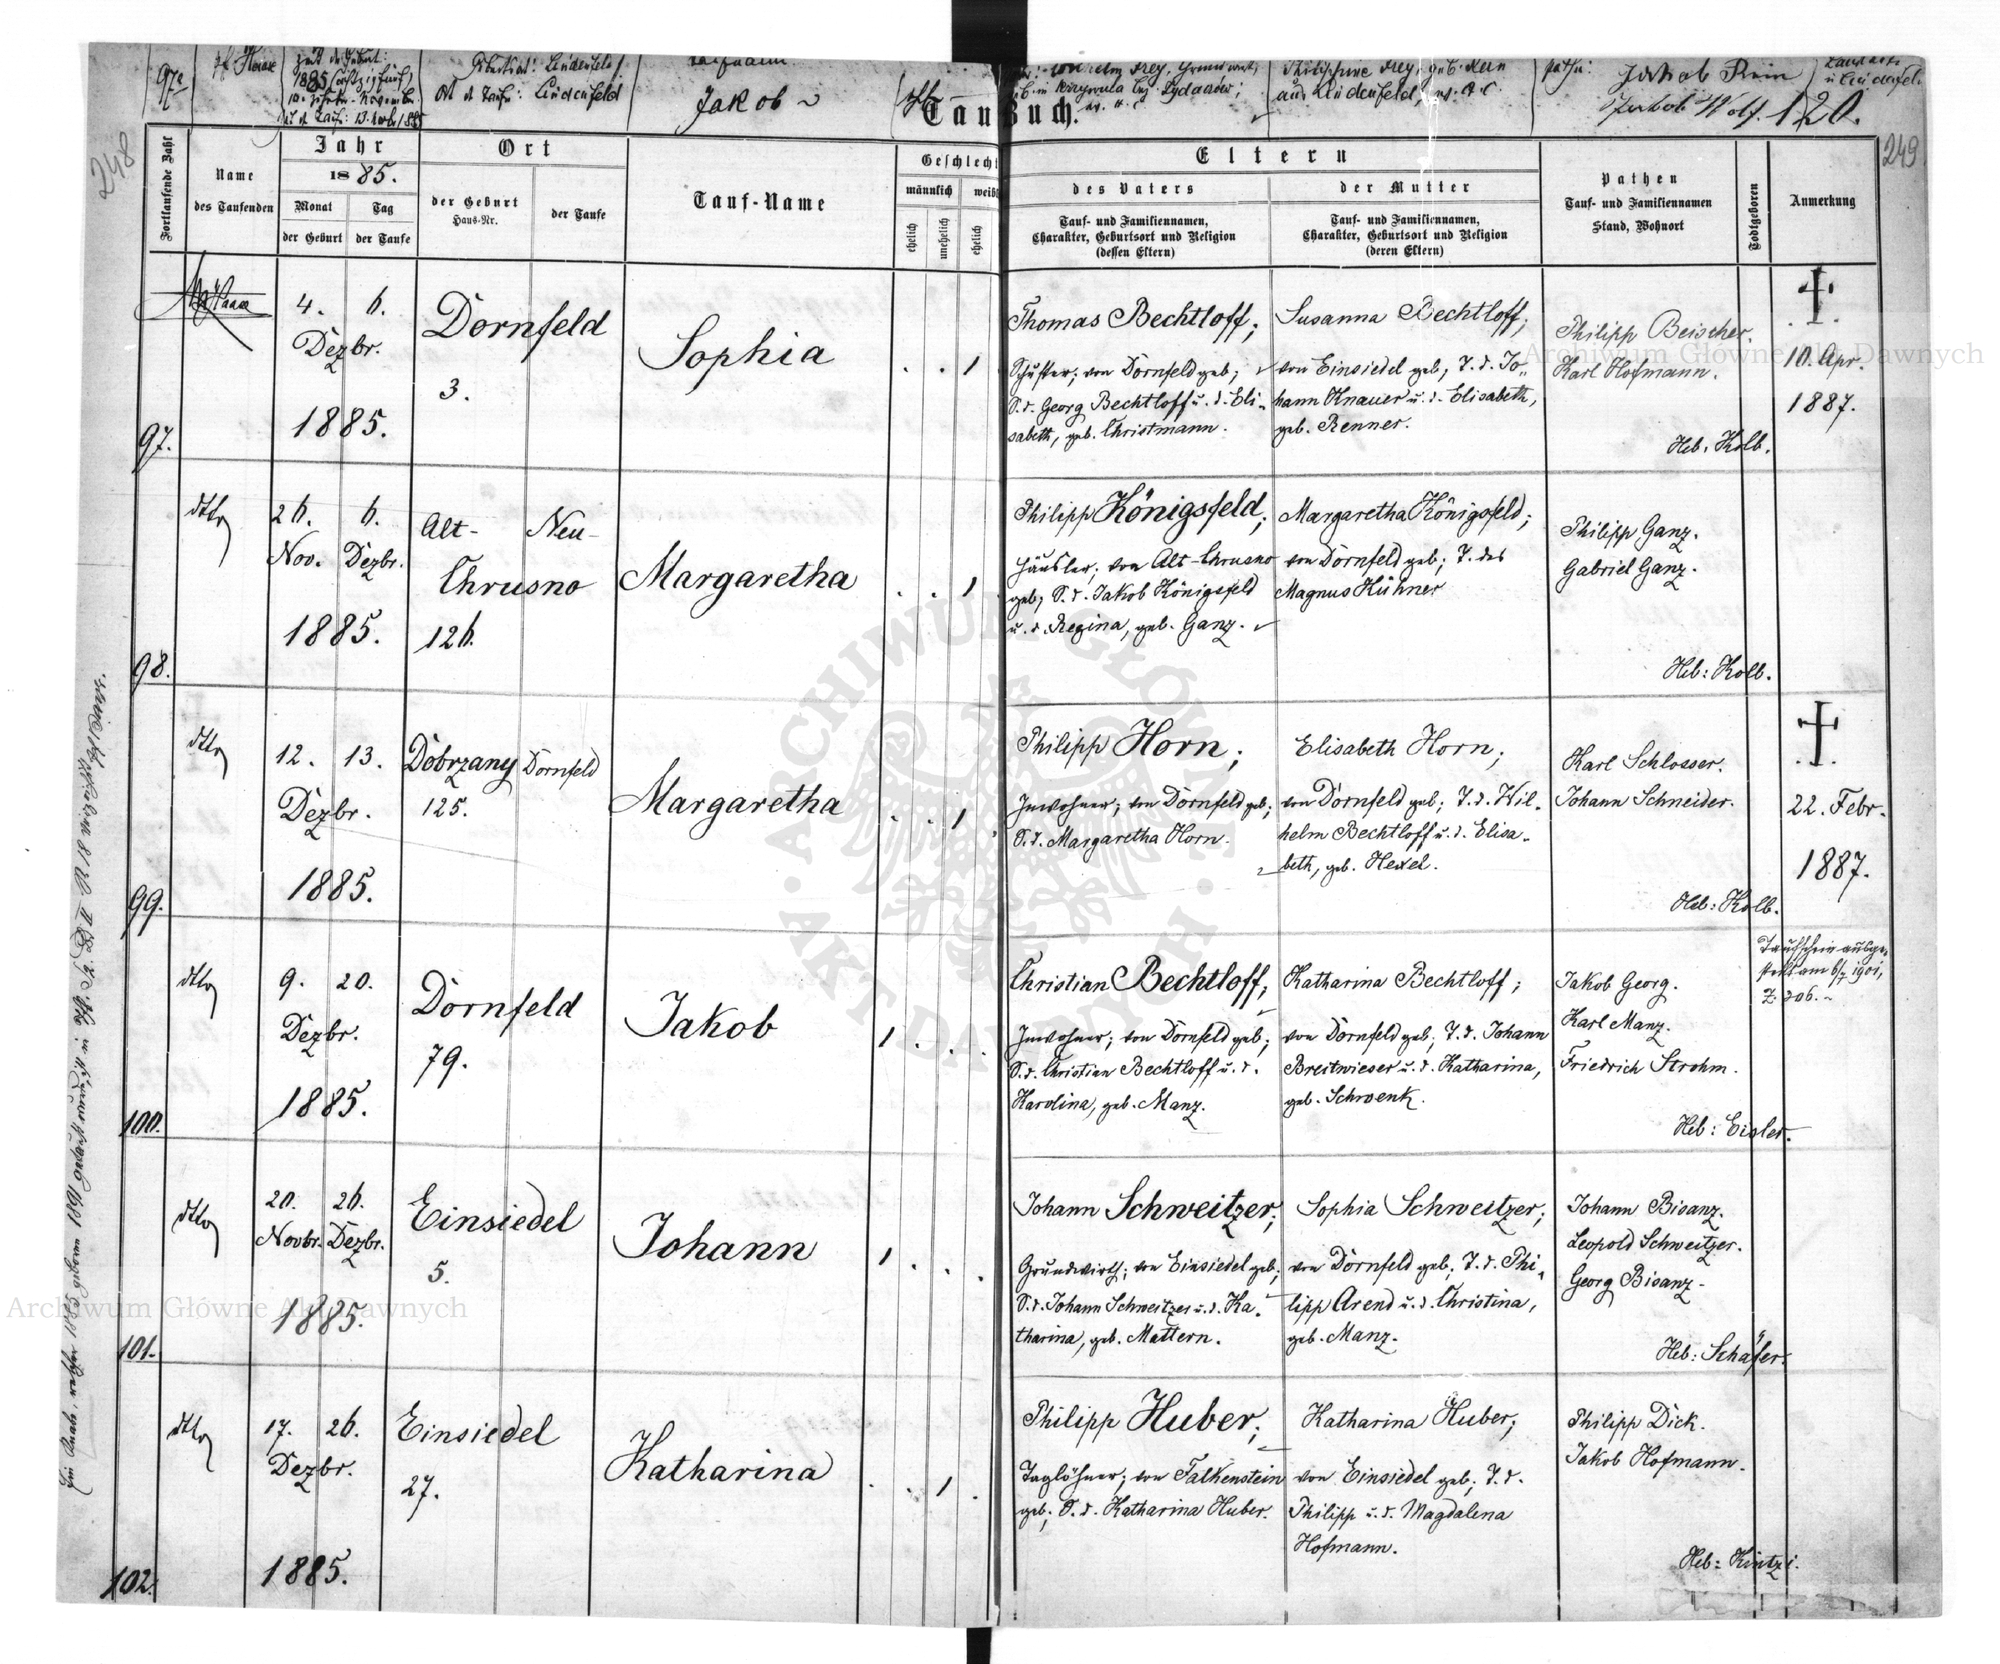 97a
Pf. Haase
Zeit der Geburt:
1885 (achtzigfünf)
10. zehnten November
Tag d. Taufe: 13. Novbr. 1885
Geburtsort: Lindenfeld
Ort d. Taufe: Lindenfeld
Taufname
Jakob
Wilhelm Frey, Grundwirt,
Philippine Frey, geb. Rein
aus Lindenfeld, ev. A. C.
Pathe:
Jakob Rein
Jakob Wolf.
u Lindenfeld
Taufbuch.
120.
248
249
Fortlaufende Zahl
Name
des Taufenden
Jahr
1885.
Monat
der Geburt
Tag
der Taufe
Ort
der Geburt
Haus-Nr.
der Taufe
Tauf-Name
Geschlecht
männlich
weib
ehelich
unehelich
ehelich
Eltern
des Vaters
Tauf- und Familiennamen,
Charakter, Geburtsort und Religion
(dessen Eltern)
der Mutter
Tauf- und Familiennamen,
Charakter, Geburtsort und Religion
(deren Eltern)
Pathen
Tauf- und Familiennamen
Stand, Wohnort
Todtgeboren
Anmerkung
97.
Haase
4. 6.
Dezbr.
1885.
Dornfeld
3.
Sophia
. . 1
Thomas Bechtloff;
Schuster; von Dornfeld geb;
S. d. Georg Bechtloff u. d. Eli-
sabeth, geb. Christmann.
Susanna Bechtloff;
von Einsiedel geb; T. d. Jo-
hann Knauer u. d. Elisabeth,
geb. Renner.
Philipp Beischer.
Karl Hofmann.
Heb: Kolb.
10. Apr.
1887.
98.
dtto
26. 6.
Nov. Dezbr.
1885.
Alt- Neu-
Chrusno
126.
Margaretha
. . 1
Philipp Königsfeld;
Häusler; von Alt-Chrusno
geb; S. d. Jakob Königsfeld
u. d. Regina, geb. Ganz.
Margaretha Königsfeld;
von Dornfeld geb; T. des
Magnus Kühner
Philipp Ganz.
Gabriel Ganz.
Heb: Kolb.
99.
dtto
12. 13.
Dezbr.
1885.
Dobrzany Dornfeld
125.
Margaretha
. . 1
Philipp Horn;
Inwohner; von Dornfeld geb;
S. d. Margaretha Horn.
Elisabeth Horn;
von Dornfeld geb; T. d. Wil-
helm Bechtloff u. d. Elisa-
beth, geb. Hexel.
Karl Schlosser.
Johann Schneider.
Heb: Kolb.
22. Febr.
1887.
100.
dtto
9. 20.
Dezbr.
1885.
Dornfeld
79.
Jakob
1 . . .
Christian Bechtloff;
Inwohner; von Dornfeld geb;
S. d. Christian Bechtloff u. d.
Karolina, geb. Manz.
Katharina Bechtloff;
von Dornfeld geb; T. d. Johann
Breitwieser u. d. Katharina,
geb. Schwenk.
Jakob Georg.
Karl Manz.
Friedrich Strohm.
Heb: Eisler.
Taufschein ausge-
stellt am 6/7 1901,
Z. 306.
101.
dtto
20. 26.
Novbr. Dezbr.
1885.
Einsiedel
5.
Johann
1 . . .
Johann Schweitzer;
Grundwirth; von Einsiedel geb;
S. d. Johann Schweitzer u. d. Ka-
tharina, geb. Mattern.
Sophia Schweitzer;
von Dornfeld geb; T. d. Phi-
lipp Arend u. d. Christina,
geb. Manz.
Johann Bisanz.
Leopold Schweitzer.
Georg Bisanz.
Heb: Schäfer.
102.
dtto
17. 26.
Dezbr.
1885.
Einsiedel
27.
Katharina
. . 1 .
Philipp Huber;
Taglöhner; von Falkenstein
geb; S. d. Katharina Huber.
Katharina Huber;
von Einsiedel geb; T. d.
Philipp u. d. Magdalena
Hofmann.
Philipp Dick.
Jakob Hofmann.
Heb: Kintzi.
Archiwum Główne Akt Dawnych
Archiwum Główne Akt Dawnych
ARCHIWUM GŁÓWNE · AKT DAWNYCH ·